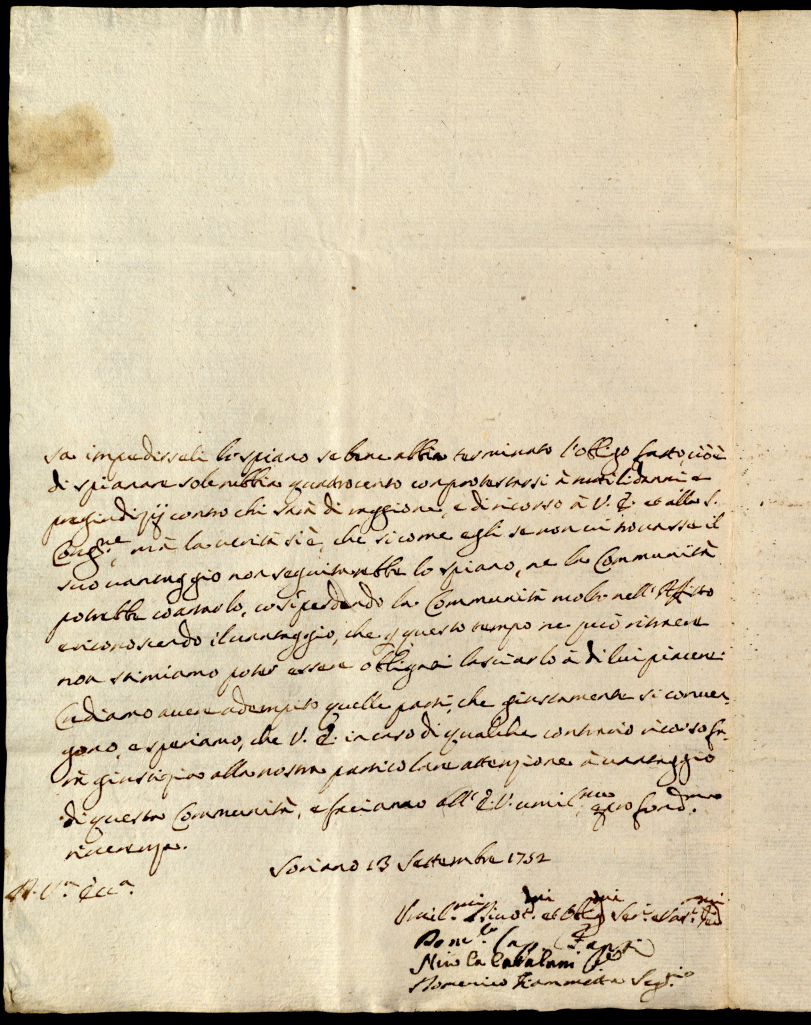 sa impedisseli lo spiano se bene abbia terminato l'obligo fatto, cioè
di spianare sole rubbia quattrocento con protestarsi à tutti li danni e
pregiudizij contro chi sarà di raggione, e di ricorso à V. E. et alla S.
Cong.ne, mà la verità si è, che sicome egli se non vi trovasse il
suo vantaggio non seguitarebbe lo spiano, ne la Communità
potrebbe coartarlo, così perdendo la Communità molto nell'Affitto
e riconoscendo il vantaggio, che p questo tempo ne può ritraere
non stimiamo poter essere obligati lasciarlo à di lui piacere:
Crediamo avere adempito quelle parti, che giustamente si conven-
gono, e speriamo, che V. E. in caso di qualche contrario ricorso fa-
rà giustizia alla nostra particolare attenzione à vantaggio
di questa Communità, e facciamo all'E. V. umil.ma e profond.ma
riverenza.
Soriano 13 Settembre 1752
D. V.ra Ecc.a
Umil.mi Div.mi et Obl.mi Ser.
Dom.co
Nicola Catalani
Domenico Fiammetta Seg.rio